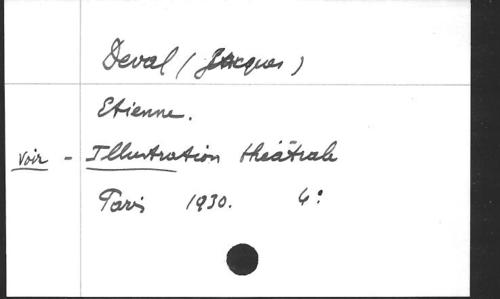 Deval (Jacques)
Etienne.
voir - Illustration théâtrale
Paris 1930. 4°